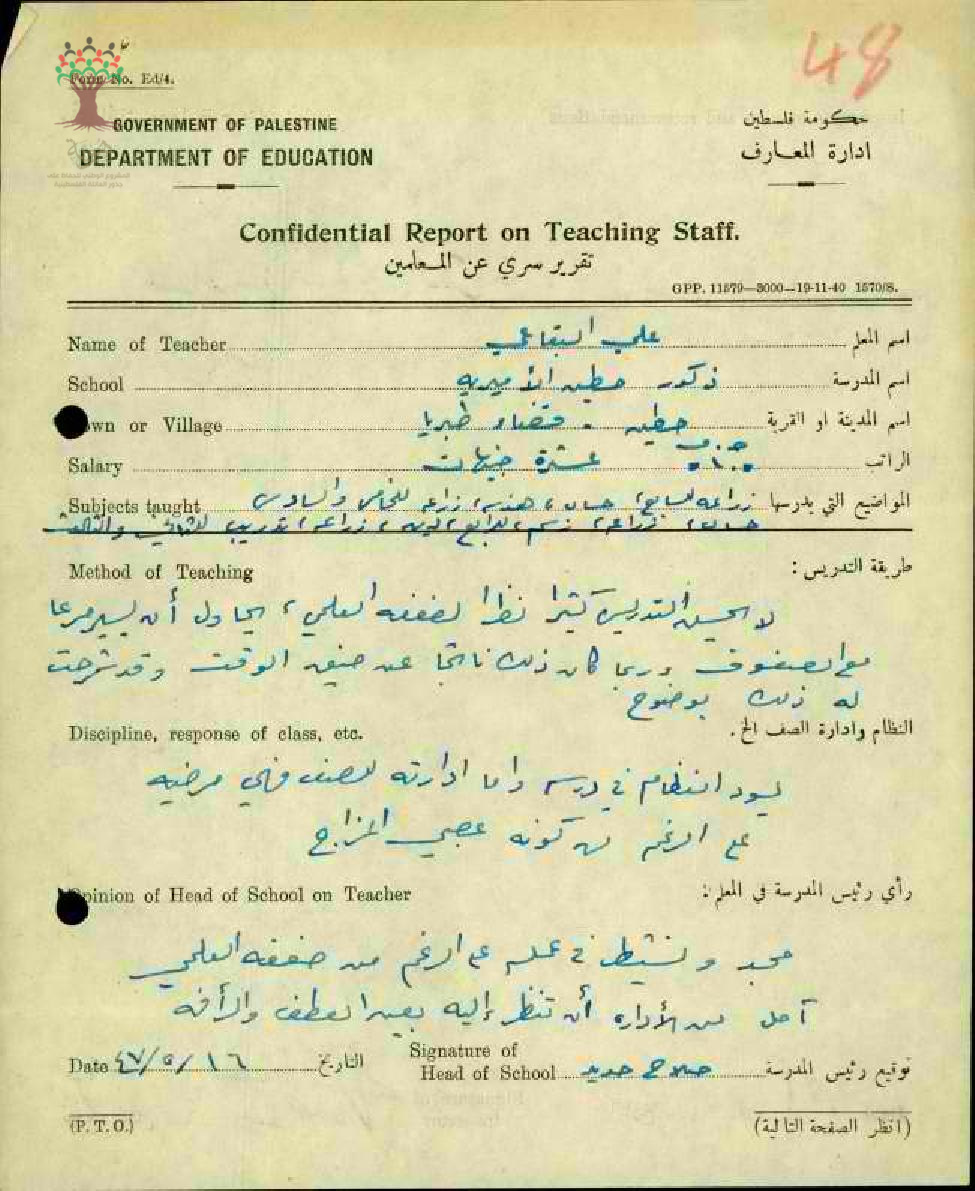 48
Form No. Ed/4.
GOVERNMENT OF PALESTINE
حكومة فلسطين
DEPARTMENT OF EDUCATION
ادارة المعارف
Confidential Report on Teaching Staff.
تقرير سري عن المعلمين
GPP. 11579—3000—19-11-40 1570/8.
Name of Teacher علي البقاعي اسم المعلم
School ذكور حطين الأميرية اسم المدرسة
Town or Village حطين - قضاء طبريا اسم المدينة او القرية
Salary عشرة جنيهات الراتب
Subjects taught زراعة للسابع، حساب، هندسة، زراعة للخامس والسادس المواضيع التي يدرسها
حساب، زراعة، رسم، للرابع، زراعة، تدريب للثاني والثالث
Method of Teaching طريقة التدريس :
لا يحسن التدريس كثيرا نظرا لضعفه العلمي، يحاول أن يسير مسرعا
مع الصفوف وربما كان ذلك ناتجا عن ضيق الوقت وقد شرحت
له ذلك بوضوح
Discipline, response of class, etc. النظام وادارة الصف الخ.
يسود النظام في درسه واما ادارته للصف فهي مرضيه
على الرغم من كونه عصبي المزاج
Opinion of Head of School on Teacher رأي رئيس المدرسة في المعلم :
مجد ونشيط في عمله على الرغم من ضعفه العلمي
آمل من الأدارة أن تنظر إليه بعين العطف والرأفة
Date ٤٧/٥/١٦ التاريخ Signature of
Head of School صلاح حديد توقيع رئيس المدرسة
(P. T. O.) (انظر الصفحة التالية)